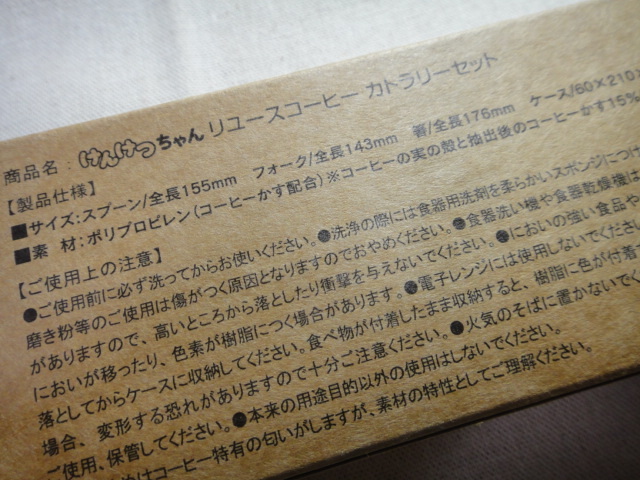 商品名：けんけつちゃん リユースコーヒー カトラリーセット
【製品仕様】
■サイズ:スプーン/全長155mm フォーク/全長143mm 箸/全長176mm ケース/60×210
■素 材:ポリプロピレン(コーヒーかす配合)※コーヒーの実の殻と抽出後のコーヒーかす15%
【ご使用上の注意】
●ご使用前に必ず洗ってからお使いください。●洗浄の際には食器用洗剤を柔らかいスポンジにつけ
磨き粉等のご使用は傷がつく原因となりますのでおやめください。●食器洗い機や食器乾燥機は
がありますので、高いところから落としたり衝撃を与えないでください。●においの強い食品や
においが移ったり、色素が樹脂につく場合があります。●電子レンジには使用しないでください
落としてからケースに収納してください。食べ物が付着したまま収納すると、樹脂に色が付着
場合、変形する恐れがありますので十分ご注意ください。●火気のそばに置かないでく
ご使用、保管してください。●本来の用途目的以外の使用はしないでください。
コーヒー特有の匂いがしますが、素材の特性としてご理解ください。